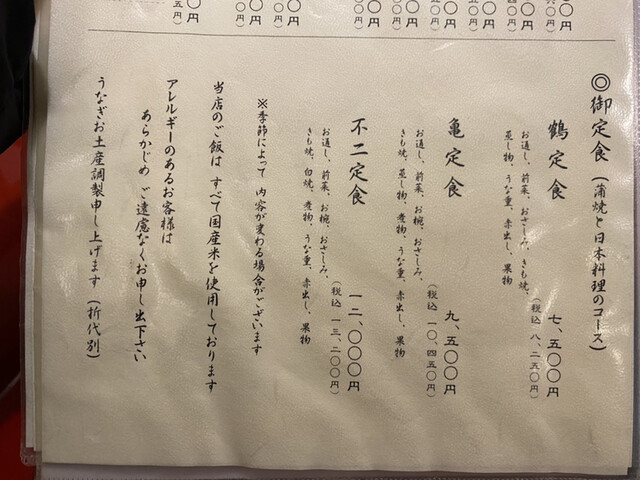 ◎御定食（蒲焼と日本料理のコース）
鶴定食 七、五〇〇円
（税込 八、二五〇円）
お通し、前菜、お椀、おさしみ、きも焼、
蒸し物、うな重、赤出し、果物
亀定食 九、五〇〇円
（税込 一〇、四五〇円）
お通し、前菜、お椀、おさしみ、
きも焼、蒸し物、煮物、うな重、赤出し、果物
不二定食 一二、〇〇〇円
（税込 一三、二〇〇円）
お通し、前菜、お椀、おさしみ、
きも焼、白焼、煮物、うな重、赤出し、果物
※季節によって 内容が変わる場合がございます
当店のご飯は すべて国産米を使用しております
アレルギーのあるお客様は
あらかじめ ご遠慮なくお申し出下さい
うなぎお土産調製申し上げます（折代別）